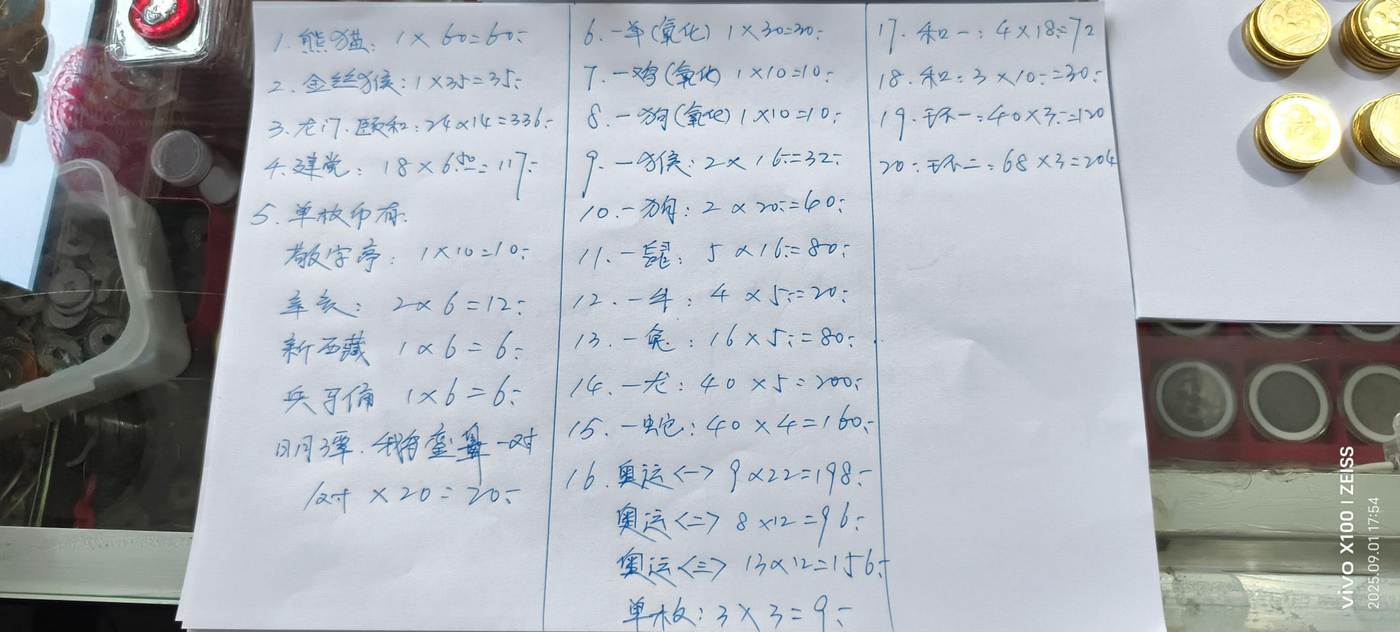 1. 熊猫: 1×60=60:
2. 金丝猴: 1×35=35:
3. 龙门. 颐和: 24×14=336:
4. 建党: 18×6.50=117:
5. 单枚币有:
敬字亭: 1×10=10:
辛亥: 2×6=12:
新西藏 1×6=6:
兵马俑 1×6=6:
日月潭. 我有 一对
1对×20=20:
6. 一羊(氧化) 1×30=30:
7. 一鸡(氧化) 1×10=10:
8. 一狗(氧化) 1×10=10:
9. 一猴: 2×16=32:
10. 一狗: 2×20=40:
11. 一鼠: 5×16=80:
12. 一牛: 4×5=20:
13. 一兔: 16×5=80:
14. 一龙: 40×5=200:
15. 一蛇: 40×4=160:
16. 奥运<一> 9×22=198:
奥运<二> 8×12=96:
奥运<三> 13×12=156:
单枚: 3×3=9:
17. 和一: 4×18=72
18. 和: 3×10=30:
19. 环一: 40×3=120
20: 环二: 68×3=204
vivo X100 | ZEISS
2025.09.01 17:54